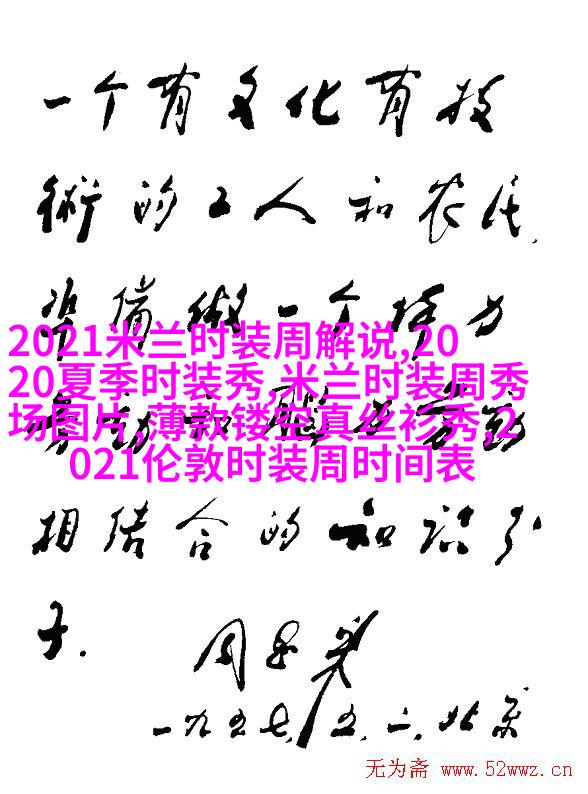 一个有文化有技
術的工人和农民.
准備做一个体力
2021米兰时装周解说,20
20夏季时装秀,米兰时装周秀
劳动和脑力劳动
场图片,薄款镂空真丝衫秀,2
021伦敦时装周时间表
相结合的知识分
子.
周恩来
一九五七.五.一.北京
无为斋 www.52wwz.cn